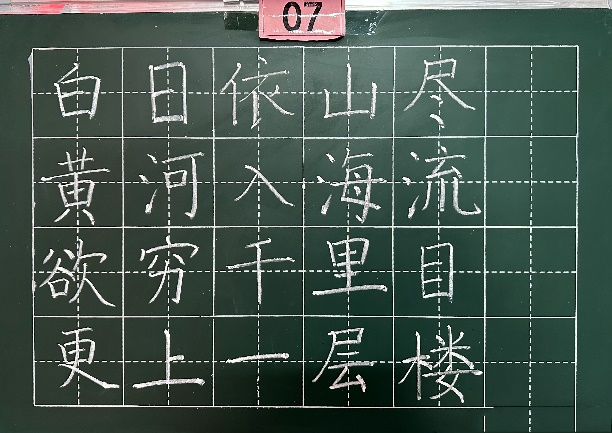 07
白日依山尽
黄河入海流
欲穷千里目
更上一层楼